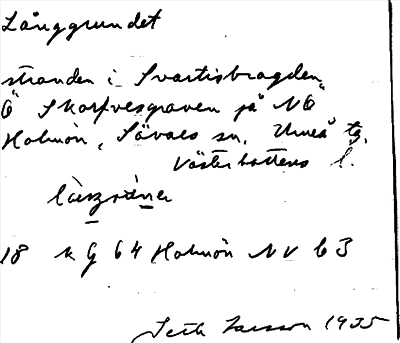 Långgrundet
stranden i Svartisbragden,
Ö Skarpvesgraven på NÖ
Holmön, Sävars sn. Umeå tg.
Västerbottens l.
18 K G 64 Holmön NV b 3
Seth Larsson 1955